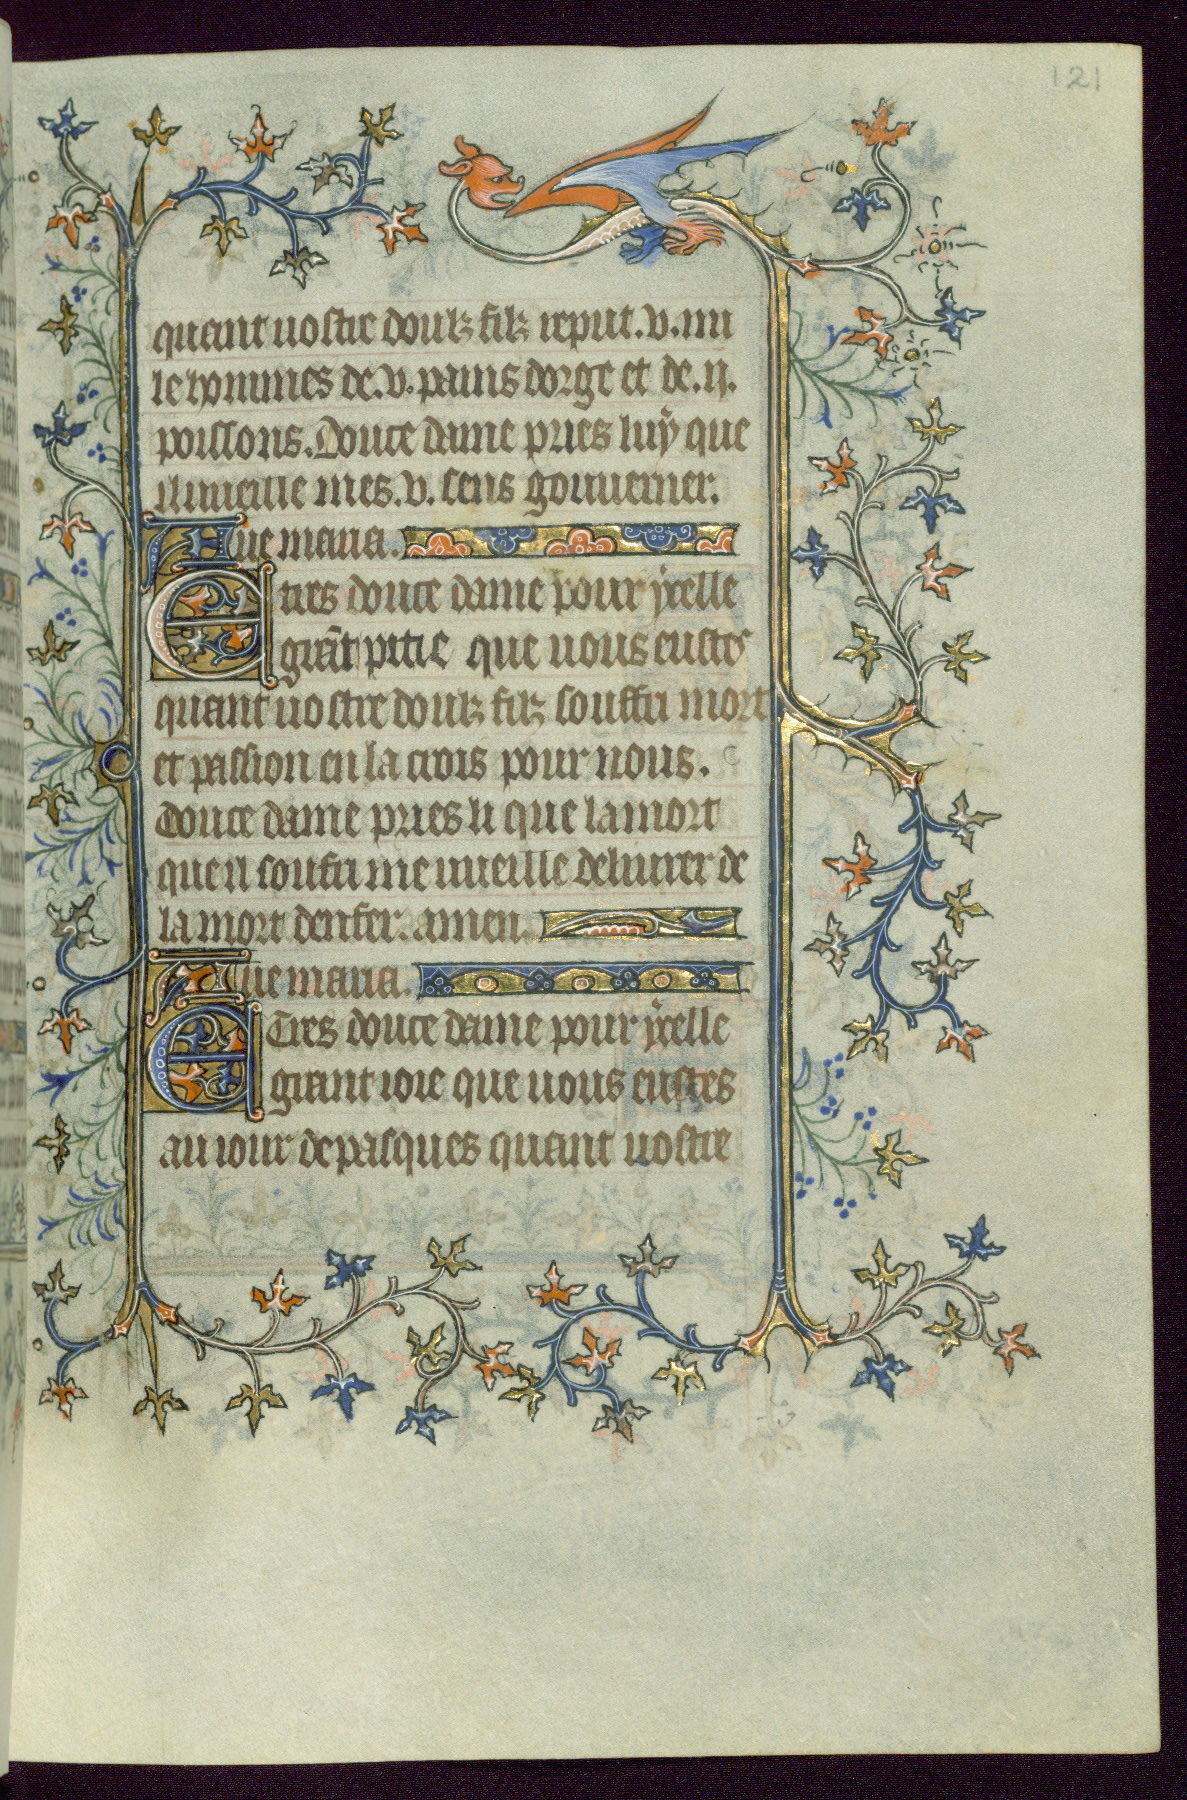 121
quant uostre doulz filz reput .v. mi
le hommes de .v. pains dorge et de .ii.
poissons. Douce dame pries luy que
il uueille mes .v. sens gouuerner.
Aue maria.
E tres douce dame pour ycelle
grãt pitie que uous eustes
quant uostre doulz filz souffri mort
et passion en la crois pour nous.
Douce dame pries li que la mort
que il soufri me uueille deliurer de
la mort denfer. amen.
Aue maria.
E Tres douce dame pour ycelle
grant ioie que uous eustes
au iour de pasques quant uostre